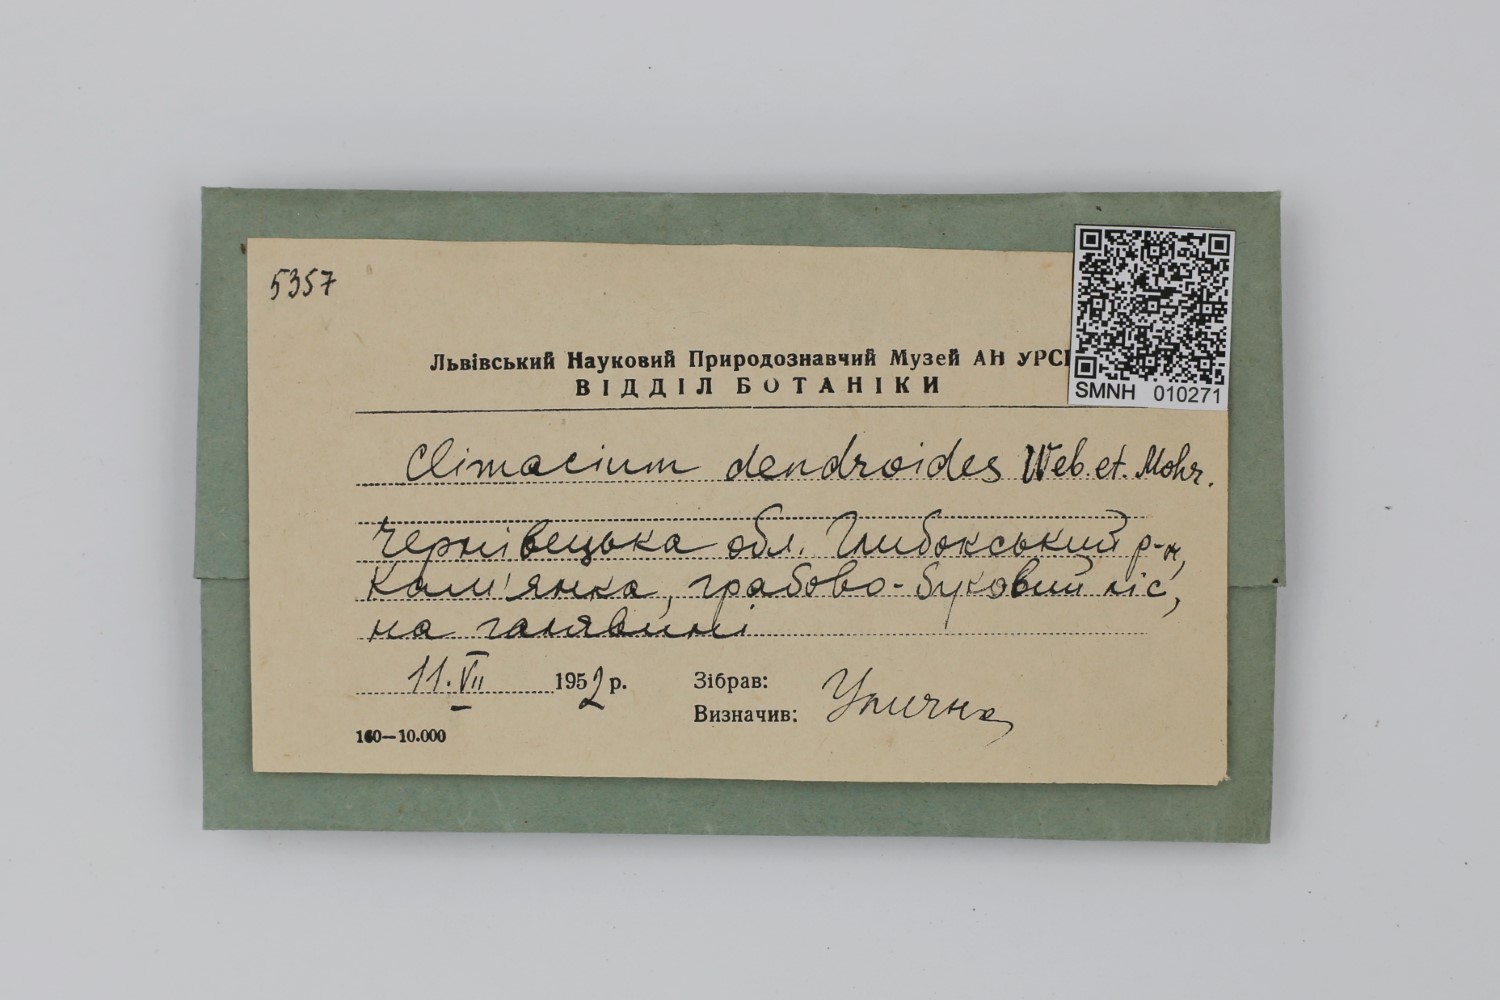 5357
Львівський Науковий Природознавчий Музей АН УРС
ВІДДІЛ БОТАНІКИ
SMNH 010271
Climacium dendroides Web. et. Mohr.
Чернівецька обл. Глибокський р-н,
Кам'янка, грабово-буковий ліс,
на галявині
11.VII 1952 р.
Зібрав:
Визначив: Улична
160—10.000